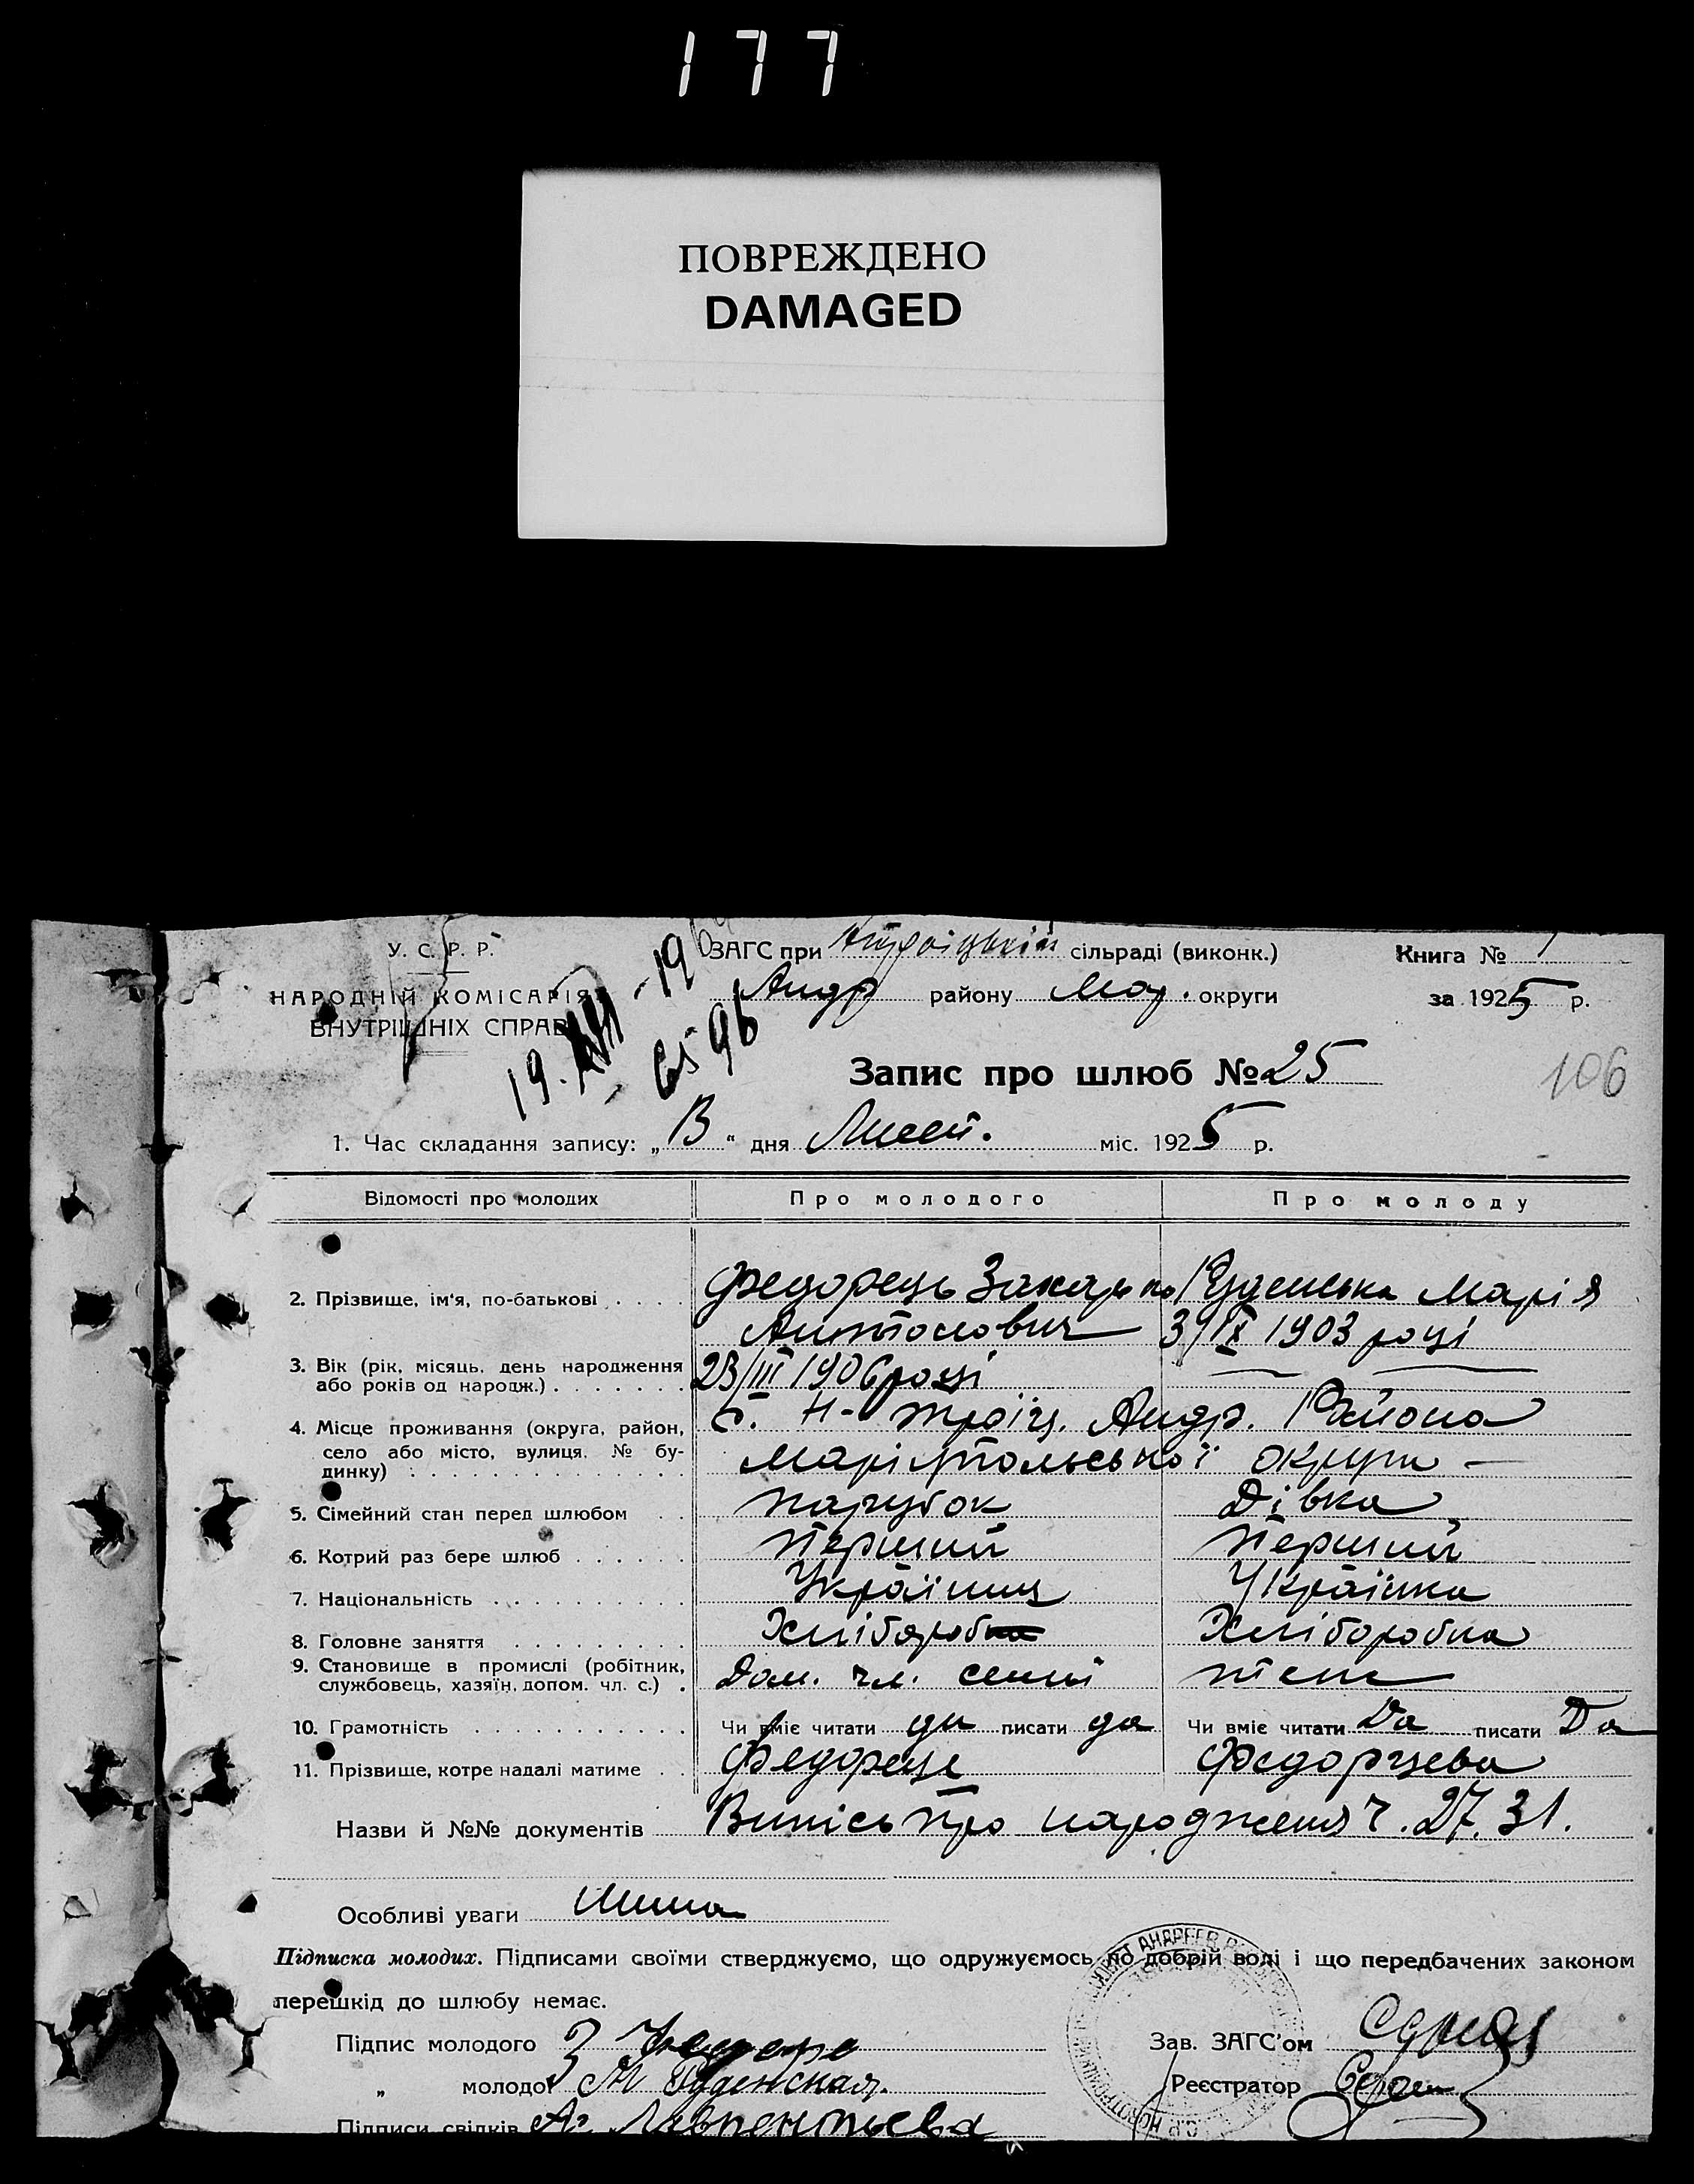 177
ПОВРЕЖДЕНО
DAMAGED
У. С. Р. Р.
НАРОДНІЙ КОМІСАРІЯТ
ВНУТРІШНІХ СПРАВ
ЗАГС при сільраді (виконк.)
Андр району Мар. округи
Книга № 1
за 1925 р.
Запис про шлюб № 25
106
1. Час складання запису: „ “ дня Лист. міс. 1925 р.
Відомості про молодих
Про молодого
Про молоду
2. Прізвище, ім'я, по-батькові
Федорець Захарко
Антонович
Руденська Марія
3/IX 1903 році
3. Вік (рік, місяць, день народження
або років од народж.)
23/III 1906 році
4. Місце проживання (округа, район,
село або місто, вулиця, № бу-
динку)
с. Н-Троїц. Андр. Района
Маріупольської округи —
5. Сімейний стан перед шлюбом парубок Дівка
6. Котрий раз бере шлюб Перший Перший
7. Національність Українец Українка
8. Головне заняття Хлібороб Хліборобка
9. Становище в промислі (робітник,
службовець, хазяїн, допом. чл. с.)
Дом. чл. семї теж
10. Грамотність Чи вміє читати да писати да Чи вміє читати Да писати Да
11. Прізвище, котре надалі матиме Федорець Федорцева
Назви й №№ документів Випісь про народження ч. 27. 31.
Особливі уваги Нима
Підписка молодих. Підписами своїми стверджуємо, що одружуємось по добрій волі і що передбачених законом
перешкід до шлюбу немає.
Підпис молодого З
„ молодої М Руденская.
Підписи свідків А. Лаврентьева
Зав. ЗАГС'ом
Реєстратор